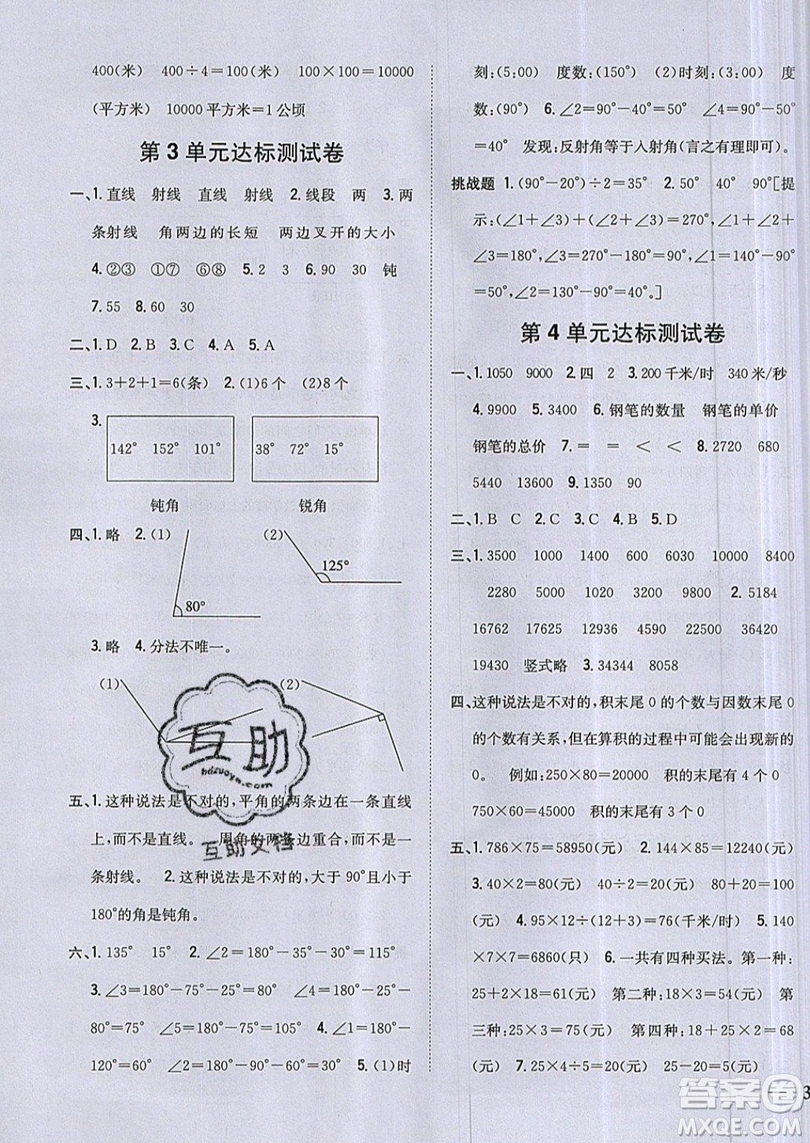 400(米) 400÷4=100(米) 100×100=10000
(平方米) 10000平方米=1公顷
第3单元达标测试卷
一、1.直线 射线 直线 射线 2.线段 两 3.两
条射线 角两边的长短 两边叉开的大小
4.②③ ①⑦ ⑥⑧ 5.2 3 6.90 30 钝
7.55 8.60 30
二、1.D 2.B 3.C 4.A 5.A
三、1.3+2+1=6(条) 2.(1)6个 (2)8个
3.
142° 152° 101°
38° 72° 15°
钝角 锐角
四、1.略 2.(1) (2)
125°
80°
3.略 4.分法不唯一。
(1) (2)
五、1.这种说法是不对的,平角的两条边在一条直线
上,而不是直线。 周角的两边重合,而不是一
条射线。 2.这种说法是不对的,大于90°且小于
180°的角是钝角。
六、1.135° 15° 2.∠2=180°-35°-30°=115°
3.∠3=180°-75°=105° ∠4=180°-105°=
75° ∠5=180°-75°=105° 4.∠1=180°-
120°=60° ∠2=180°-90°-60°=30° 5.(1)时
刻:(5:00) 度数:(150°) (2)时刻:(3:00) 度
数:(90°) 6.∠2=90°-50°=40° ∠1=90°-
50°=40° 发现:反射角等于入射角(言之有理即可)。
挑战题 1.(90°-20°)÷2=35° 2.50° 40° 90°[提
示:(∠1+∠3)+(∠2+∠3)=270°,∠1+∠2+
∠3=180°,∠3=270°-180°=90°,∠1=
130°-90°=40°,∠2=140°-90°=50°。]
第4单元达标测试卷
一、1.1050 9000 2.四 2 3.200千米/时 340米/秒
4.9900 5.3400 6.钢笔的数量 钢笔的单价
钢笔的总价 7.= = < < 8.2720 680
5440 13600 9.1350 90
二、1.B C 2.C 3.A 4.B 5.D
三、1.3500 1000 1400 6030 10000 8400
2280 5000 1200 1200 2.5184
16762 10527 13645 22000 36420
19430 竖式略 3.34344 8058
四、这种说法是不对的,积末尾0的个数与因数末尾0
的个数有关系,但在算积的过程中可能会出现新的
0。 例如:250×80=20000 积的末尾有4个0
750×60=45000 积的末尾有3个0
五、1.786×75=58950(元) 2.144×85=12240(元)
3.40×2=80(元) 40÷2=20(元) 80+20=100
(元) 4.95×12÷(12+3)=76(千米/时) 5.140
×7×7=6860(元) 6.一共有四种买法。第一种:
25+2×18=61(元) 第二种:18×3=54(元) 第
三种:25×3=75(元) 第四种:18+25×2=68
(元) 7.25×4÷5=20(元) 25-20=5(元)
互助
hdzuoye.com
互助文档
答案圈
MXQE.COM
3